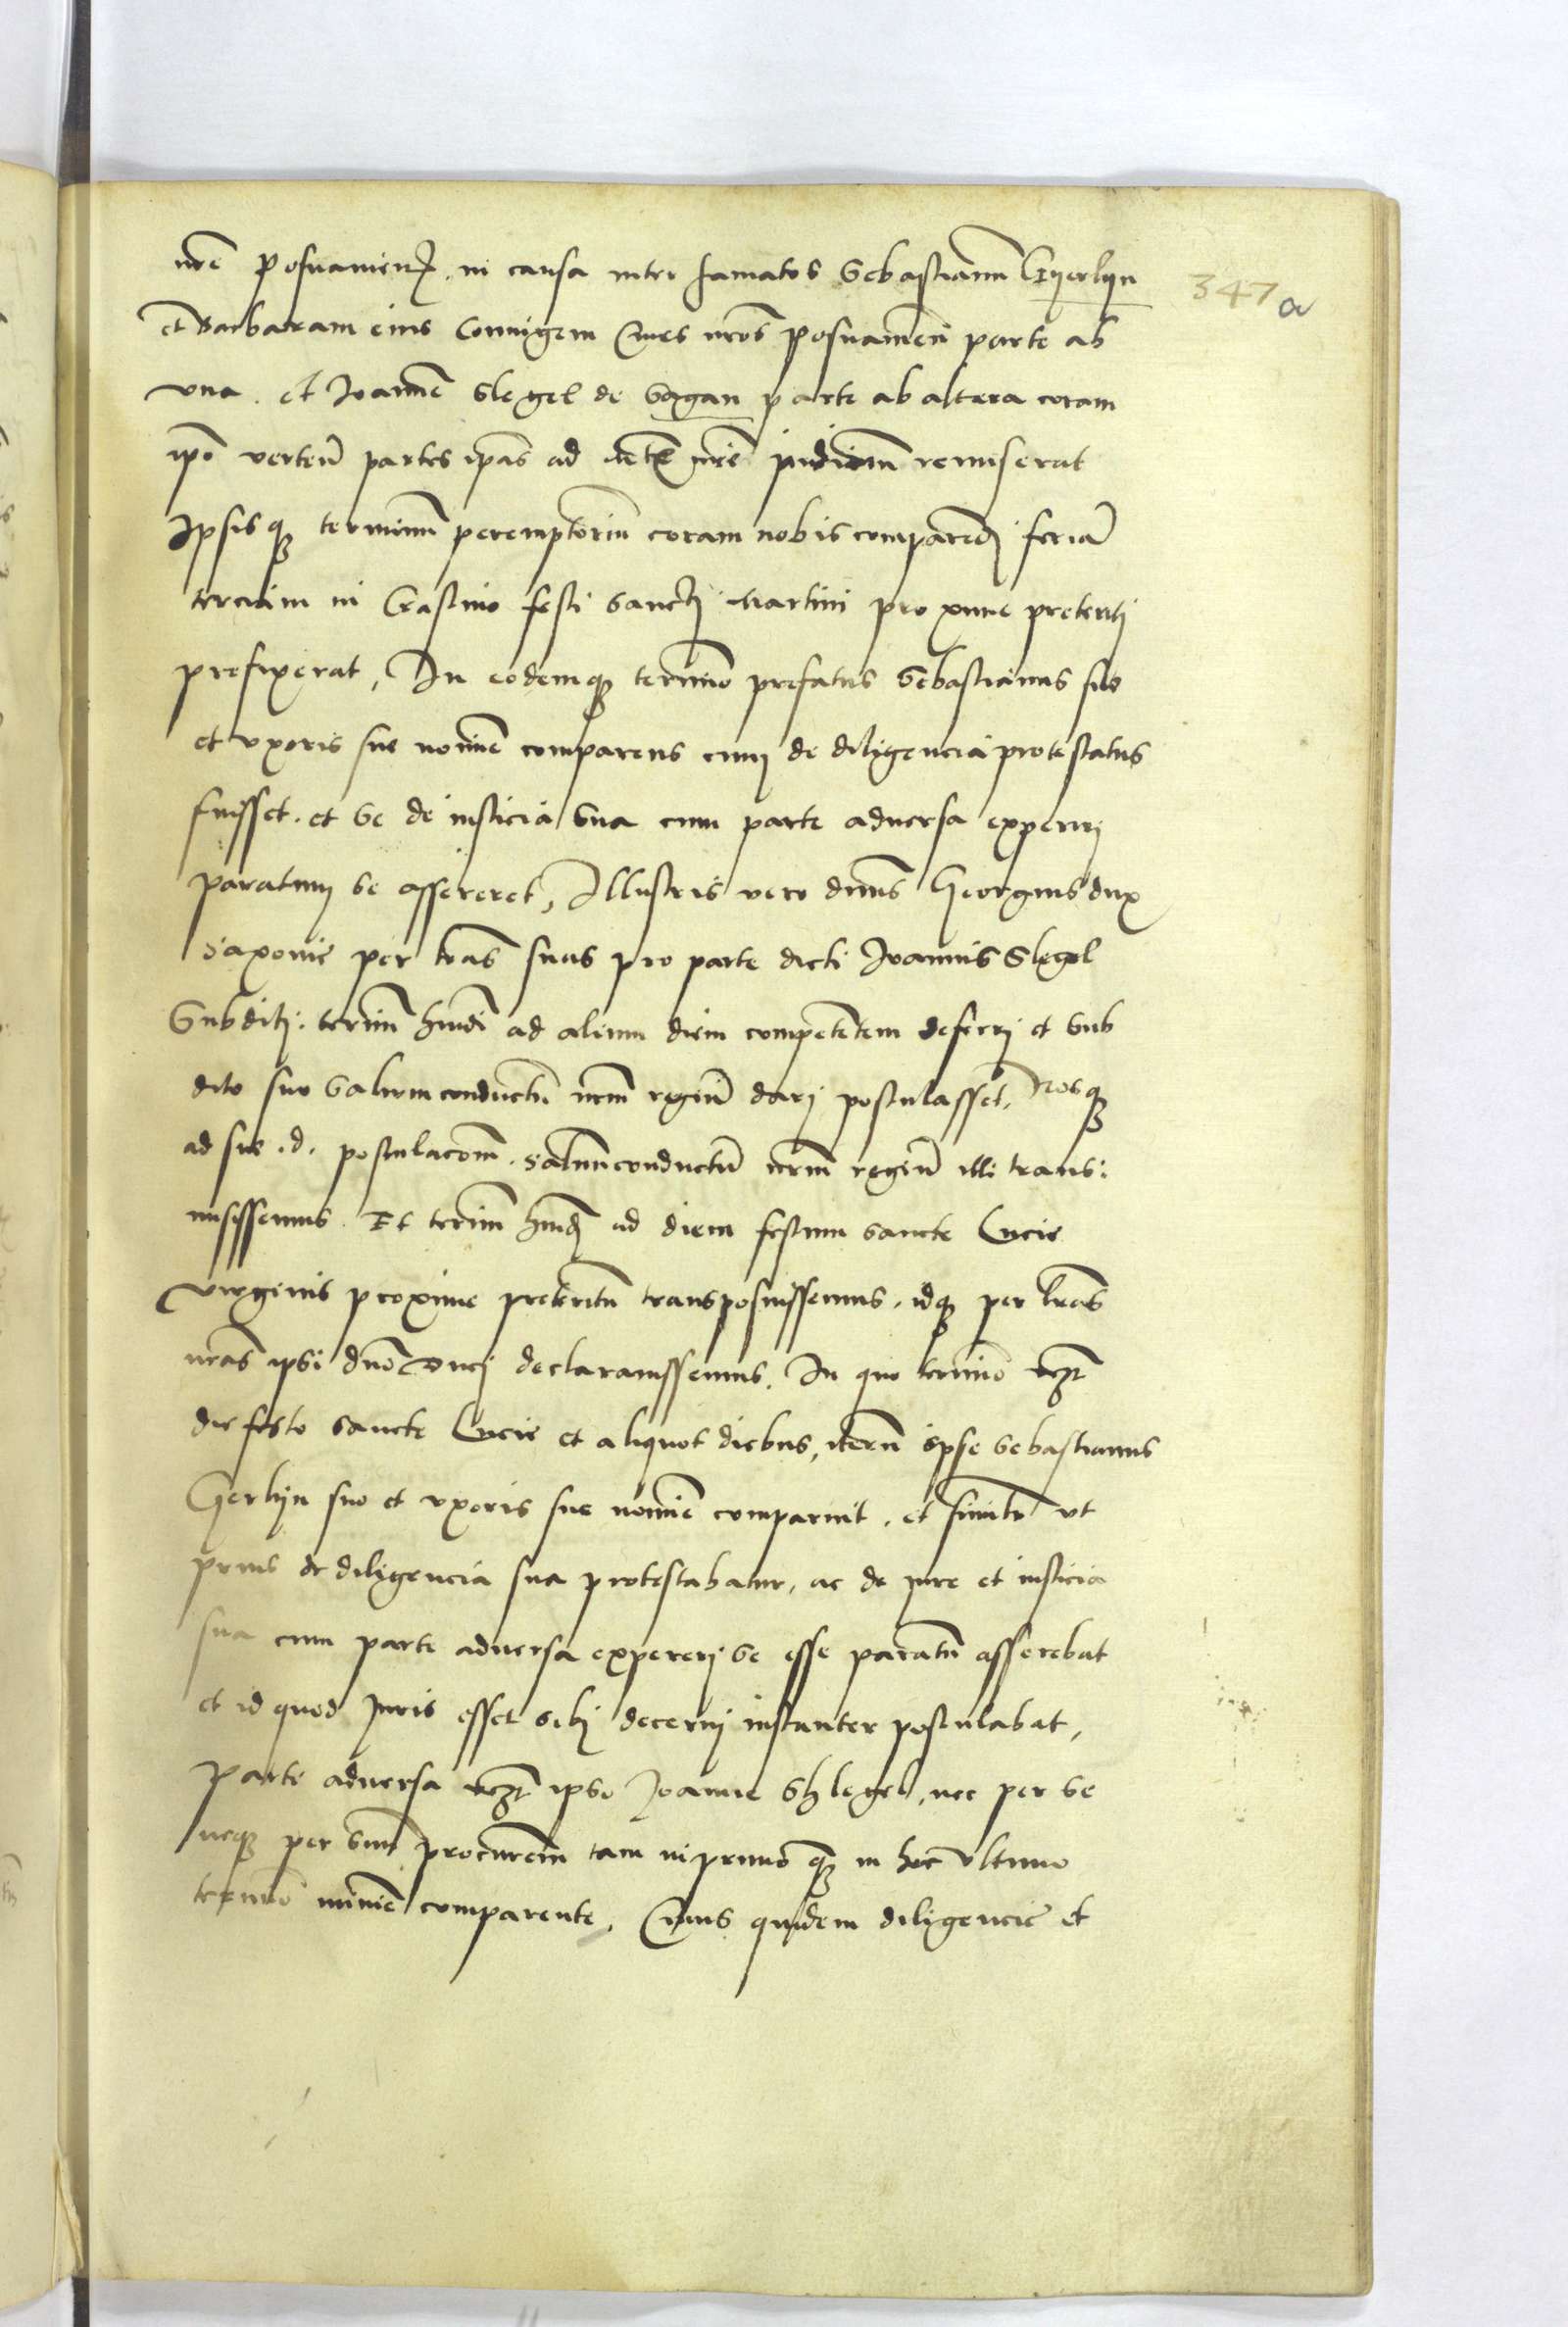 nrē Posnanien. in causa inter famatos Sebastianum Gyerlyn
et Barbaram eius Coniugem Ciues nrōs Posnanieñ parte ab
vna. et Joannē Slegel de Sagan parte ab altera coram
ipō verteñ partes ipas ad mtis nrē judicium remiserat
Ipsisq terminum peremptoriū coram nobis comparendj feriā
terciam in Crastino festi Sanctj Martini proxime preteritj
prefixerat, In eodemq termino prefatus Sebastianus suo
et vxoris sue nomine comparens cum de diligencia protestatus
fuisset. et se de iusticia Sua cum parte aduersa experirj
paratum se assereret, Illustris vero dnus Georgius dux
Saxonie per lras suas pro parte dicti Joannis Slegel
Subditj. terminū hmōi ad alium diem competentem deferrj et Sub
dito suo Saluumconductū nrm regiū darj postulasset, Nosq
ad sue .d. postulacōm. Saluumconductū nrm regiū illi trans-
misissemus. Et terminū hmōj ad diem festum sancte Lucie
virginis proxime preteritum transposuissemus, idq per lras
nras ipsi dnō Ducj declarauissemus. In quo termino
die festo Sancte Lucie et aliquot diebus, iterū ipse Sebastianus
Gerlyn suo et vxoris sue nomine comparuit. et similr vt
prius de diligencia sua protestabatur, ac de jure et iusticia
sua cum parte aduersa expererj se esse paratū asserebat
et id quod Juris esset sibj decernj instanter postulabat,
Parte aduersa ipso Joanne Shlegel, nec per se
neq per suū procurem tam in primo q in hoc vltimo
termino minime comparente, Cuius quidem diligencie et
347 a